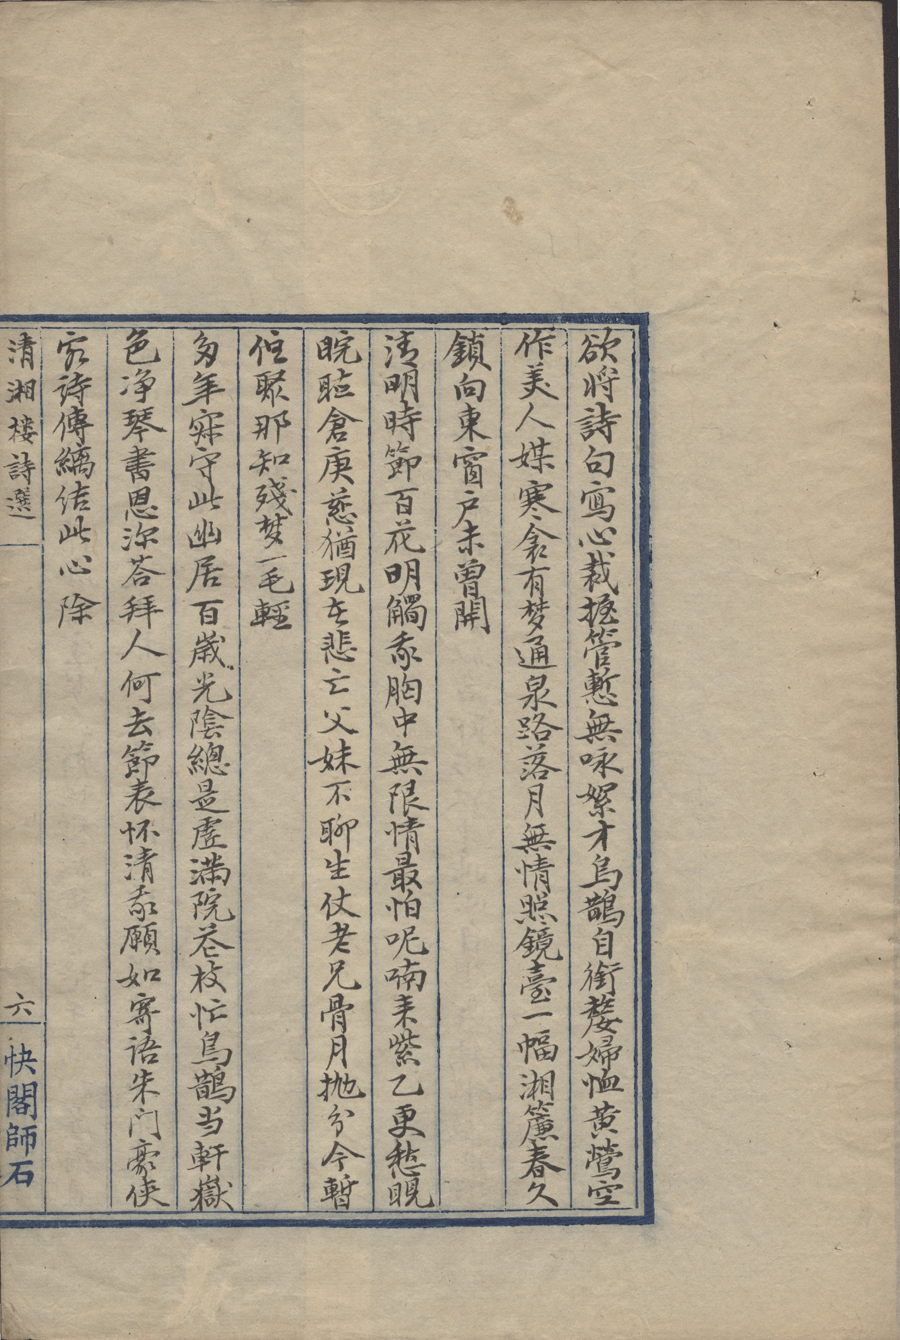 欲將詩句寫心裁握管慙無咏絮才烏鵲自銜嫠婦恤黃鶯空
作美人媒寒衾有梦通泉路落月無情照鏡臺一幅湘簾春久
鎖向東窗戶未曾開
清明時節百花明觸我胸中無限情最怕呢喃来紫乙更愁睍
睆聒倉庚慈猶現在悲亡父妹不聊生仗老兄骨月抛分今暫
住聚那知殘梦一毛輕
多年寂守此幽居百歲光陰總是虛滿院花枝忙鳥鵲当軒嶽
色净琴書恩深答拜人何去節表怀清我願如寄語朱门豪侠
客詩傳縭结此心除
清湘楼詩選
六
快閣師石